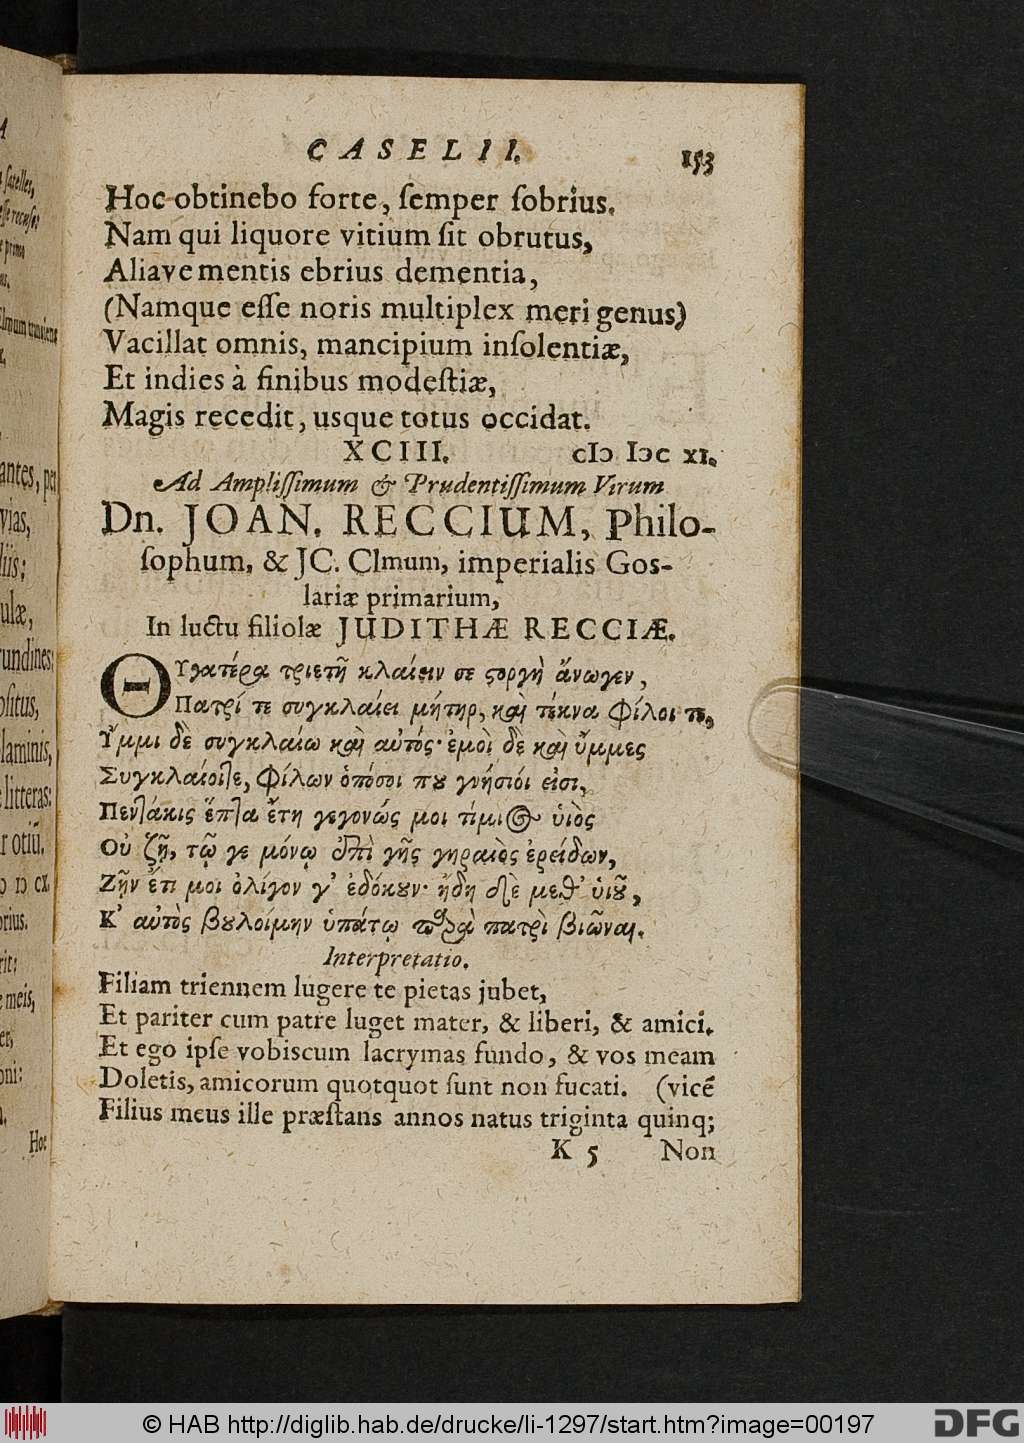 CASELII. 153
Hoc obtinebo forte, ſemper ſobrius.
Nam qui liquore vitium ſit obrutus,
Aliave mentis ebrius dementia,
(Namque eſſe noris multiplex meri genus)
Vacillat omnis, mancipium inſolentiæ,
Et indies à finibus modeſtiæ,
Magis recedit, usque totus occidat.
XCIII. cIↄ Iↄc XI.
Ad Ampliſſimum & Prudentiſſimum Virum
Dn. JOAN. RECCIUM, Philo-
ſophum, & JC. Clmum, imperialis Gos-
lariæ primarium,
In luctu filiolæ JUDITHÆ RECCIÆ.
ΘΥγατέρα τριετῆ κλαίειν σε ϛοργὴ ἄνωγεν,
Πατρί τε συγκλαίει μήτηρ, καὶ τέκνα φίλοι τε,
Υ̓́μμι δὲ συγκλαίω καὶ αὐτός· ἐμοὶ δὲ καὶ ὔμμες
Συγκλαίοιτε, φίλων ὁπόσοι που γνήσιόι εἰσι,
Πεντάκις ἕπτα ἔτη γεγονώς μοι τίμιος ὑιὸς
Οὐ ζῇ, τῷ γε μόνῳ ἐπὶ γῆς γηραιὸς ἐρείδων,
Ζῆν ἔπ μοι ὀλίγον γ' ἐδόκουν· ἤδη δὲ μεθ' ὑιοῦ,
Κ' αὐτὸς βουλοίμην ὑπάτῳ παρὰ πατρὶ βιῶναι.
Interpretatio.
Filiam triennem lugere te pietas jubet,
Et pariter cum patre luget mater, & liberi, & amici.
Et ego ipſe vobiscum lacrymas fundo, & vos meam
Doletis, amicorum quotquot ſunt non fucati. (vicē
Filius meus ille præſtans annos natus triginta quinq;
K 5 Non
ſatelles,
prima
antes, per
vias,
ulæ,
undines:
oſitus,
laminis,
litteras:
r otiũ.
meis,
Hoc
© HAB http://diglib.hab.de/drucke/li-1297/start.htm?image=00197
DFG